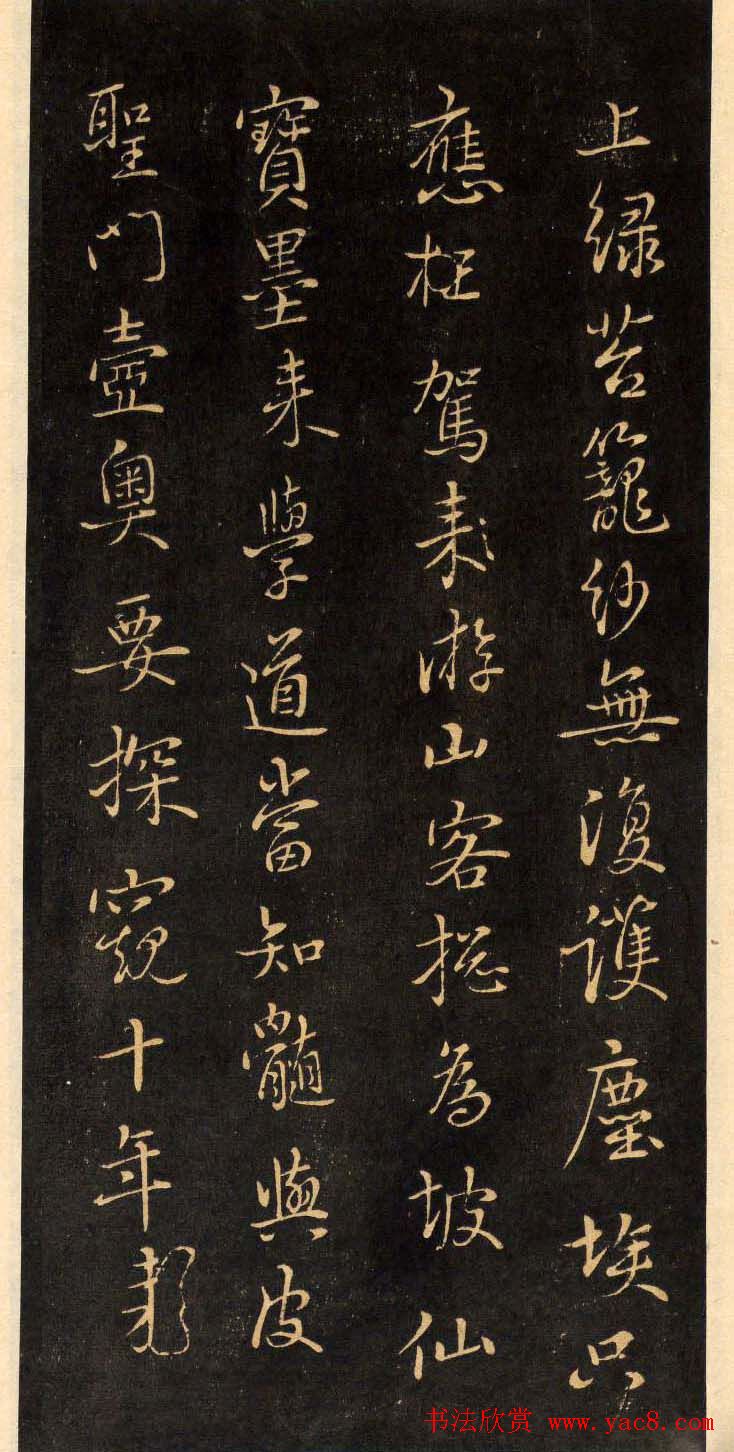 上緑苔籠紗無復護塵埃只
應枉駕来游山客揔為坡仙
寶墨来學道當知髓與皮
聖門壼奥要探窺十年
书法欣赏 www.yac8.com